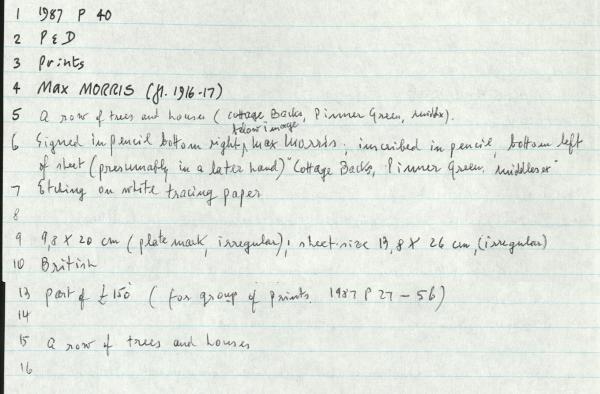 1 1987 P 40
2 P & D
3 Prints
4 Max MORRIS (fl. 1916-17)
5 A row of trees and houses (Cottage Backs, Pinner Green, Middx).
below image
6 Signed in pencil bottom right, Max Morris; inscribed in pencil, bottom left
of sheet (presumably in a later hand) "Cottage Backs, Pinner Green, Middlesex"
7 Etching on white tracing paper
8
9 9,8 X 20 cm (platemark, irregular); sheet-size 13,8 X 26 cm, (irregular)
10 British
13 part of £150 (for group of prints. 1987 P 27-56)
14
15 A row of trees and houses
16